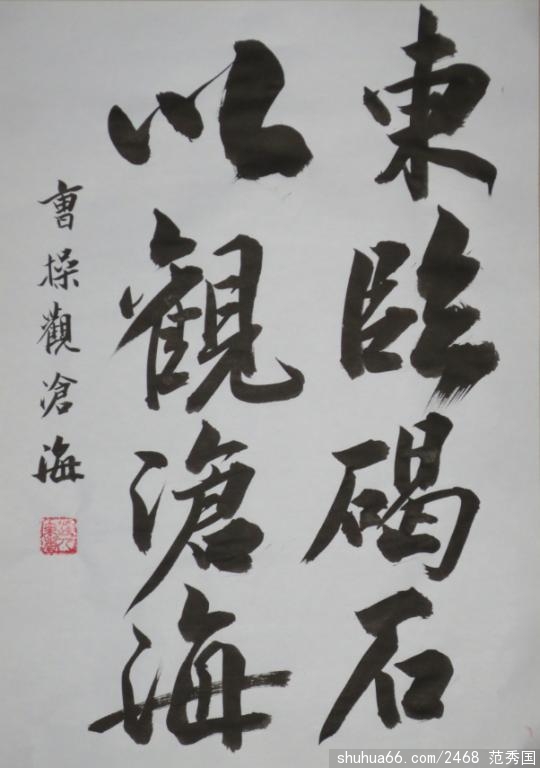 東臨碣石
以觀滄海
曹操觀滄海
shuhua66.com/2468 范秀国